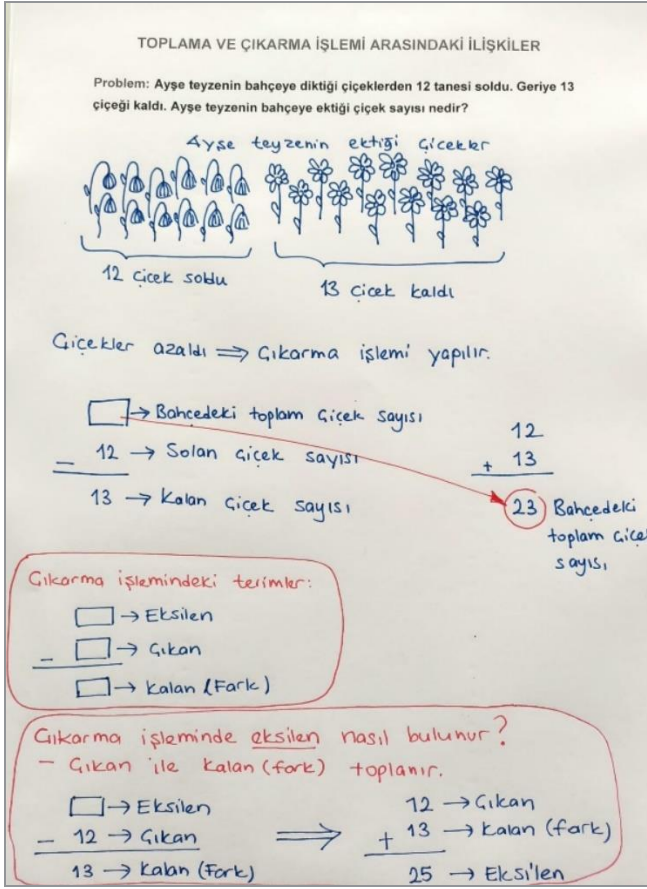 TOPLAMA VE ÇIKARMA İŞLEMİ ARASINDAKİ İLİŞKİLER
Problem: Ayşe teyzenin bahçeye diktiği çiçeklerden 12 tanesi soldu. Geriye 13
çiçeği kaldı. Ayşe teyzenin bahçeye ektiği çiçek sayısı nedir?
Ayşe teyzenin ektiği çiçekler
12 çiçek soldu
13 çiçek kaldı
Çiçekler azaldı ⇒ Çıkarma işlemi yapılır.
□ → Bahçedeki toplam çiçek sayısı
- 12 → Solan çiçek sayısı
13 → Kalan çiçek sayısı
12
+ 13
23 Bahçedeki
toplam çiçe
sayısı
Çıkarma işlemindeki terimler:
□ → Eksilen
- □ → Çıkan
□ → Kalan (Fark)
Çıkarma işleminde eksilen nasıl bulunur?
- Çıkan ile kalan (fark) toplanır.
□ → Eksilen
- 12 → Çıkan
13 → Kalan (Fark)
⇒
12 → Çıkan
+ 13 → Kalan (fark)
25 → Eksilen